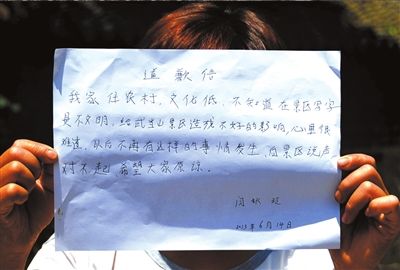 道歉信
我家住农村，文化低，不知道在景区写字
是不文明，给武当山景区造成不好的影响，心里很
难过，以后不再有这样的事情发生，向景区说声
对不起，希望大家原谅。
闫
2013年6月14日